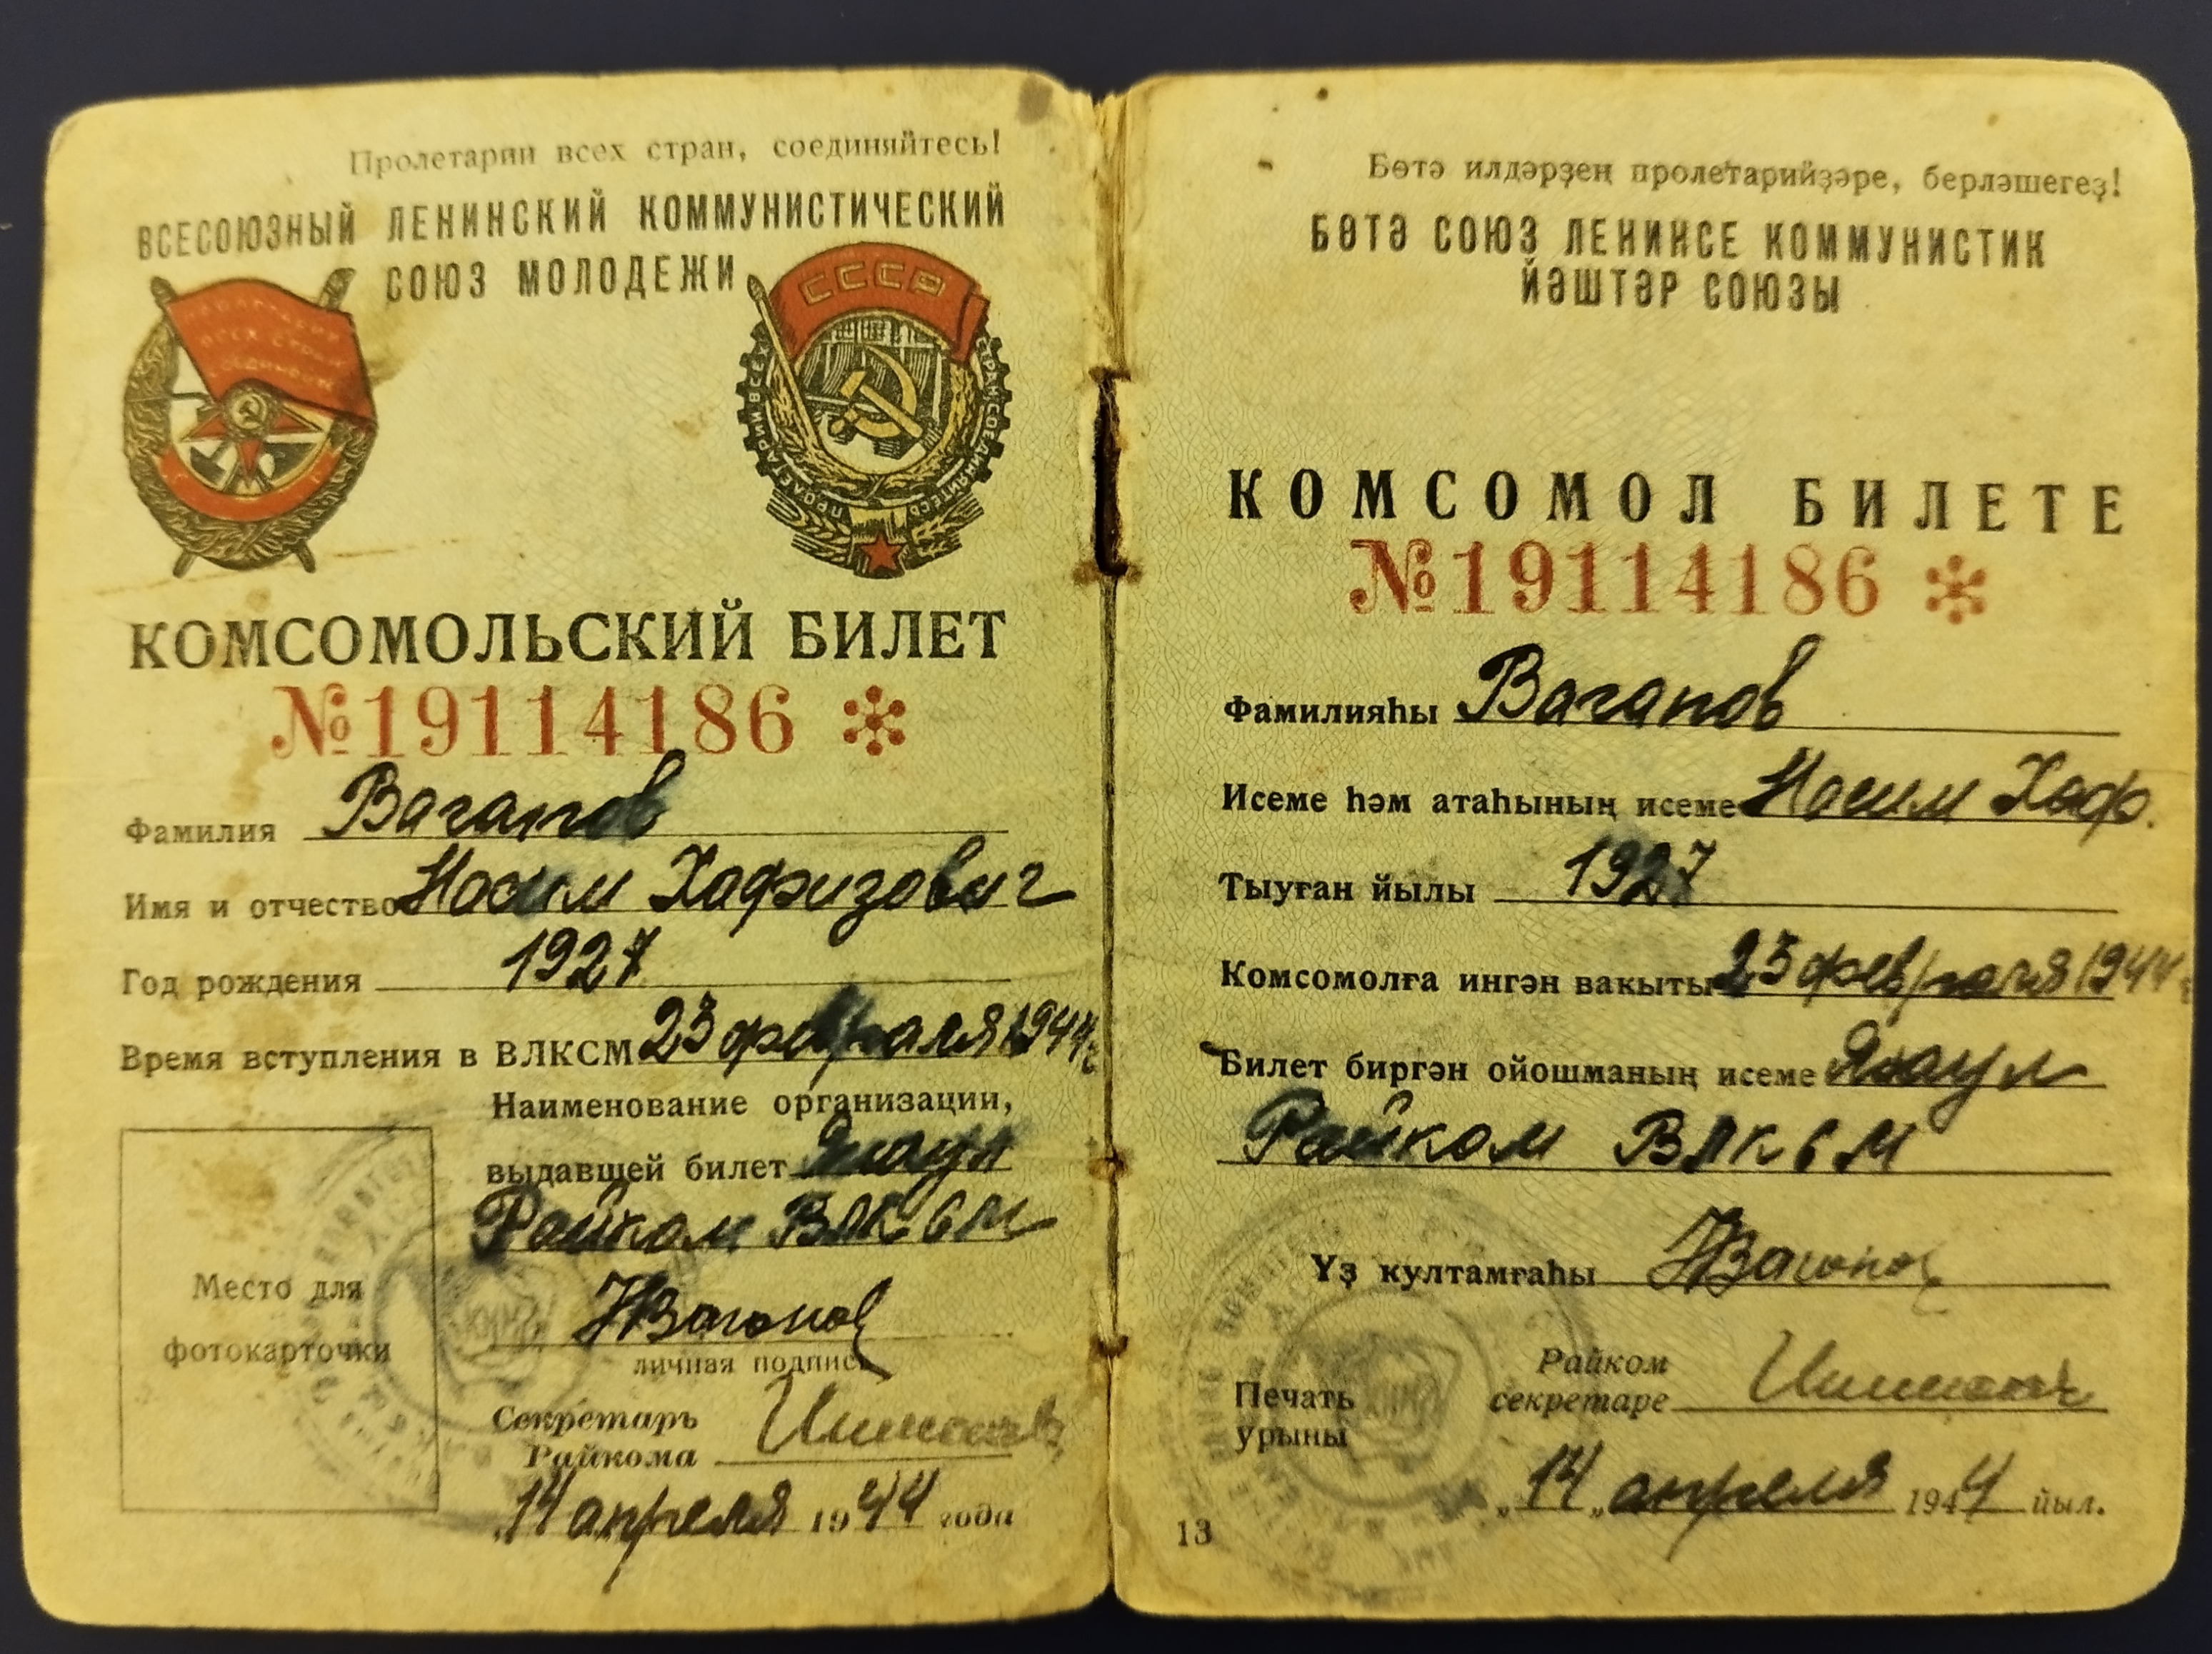 Пролетарии всех стран, соединяйтесь!
ВСЕСОЮЗНЫЙ ЛЕНИНСКИЙ КОММУНИСТИЧЕСКИЙ
СОЮЗ МОЛОДЕЖИ
СССР
КОМСОМОЛЬСКИЙ БИЛЕТ
№19114186
Фамилия Вагапов
Имя и отчество Насим Хафизович
Год рождения 1927
Время вступления в ВЛКСМ 23 февраля 1944 г
Наименование организации,
выдавшей билет Янаул
Райком ВЛКСМ
НВагапов
личная подпись
Место для
фотокарточки
Секретарь
Райкома
14 апреля 1944 года
Бөтә илдәрҙең пролетарийҙәре, берләшегеҙ!
БӨТӘ СОЮЗ ЛЕНИНСЕ КОММУНИСТИК
ЙӘШТӘР СОЮЗЫ
КОМСОМОЛ БИЛЕТЕ
№19114186
Фамилияһы Вагапов
Исеме һәм атаһының исеме Насим Хаф.
Тыуған йылы 1927
Комсомолға ингән вакыты 23 февраля 1944 г
Билет биргән ойошманың исеме Янаул
Райком ВЛКСМ
Үҙ култамғаһы НВагапов
Печать
урыны
Райком
секретаре
„14„ апреля 1944 йыл.
13